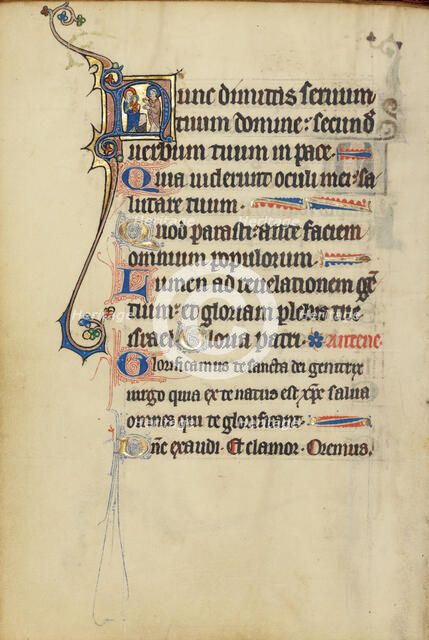 Nunc dimittis seruum
tuum domine: secund
uerbum tuum in pace
Quia uiderunt oculi mei: sa
lutare tuum
Quod parasti: ante faciem
omnium populorum
Lumen ad reuelationem gē
tium: et gloriam plebis tue
israel Gloria patri Antene
Glorificamus te sancta dei genitrix
uirgo quia ex te natus est xp̄c salua
omnes qui te glorificant
Dn̄e exaudi Et clamor Oremus